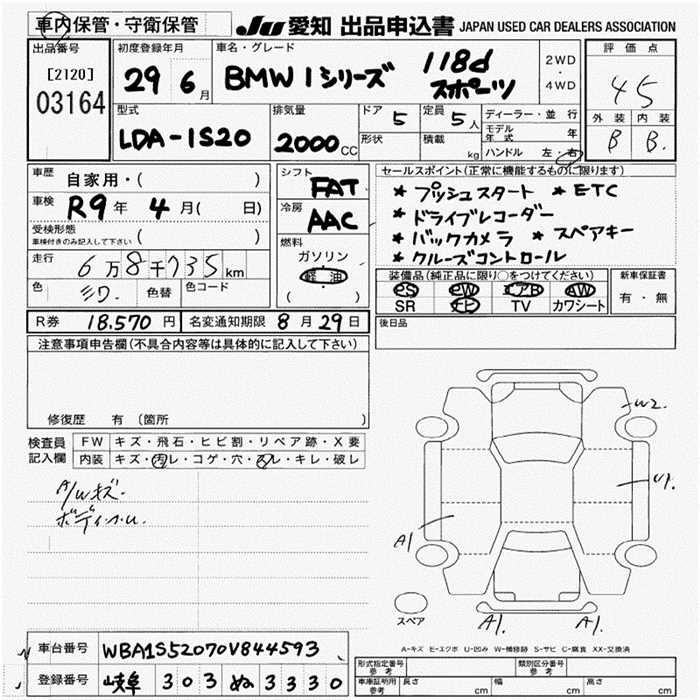 車内保管・守衛保管
JU 愛知 出品申込書 JAPAN USED CAR DEALERS ASSOCIATION
出品番号 初度登録年月 車名・グレード 評価点
[2120]
03164
29 6月 BMW 1シリーズ 118d スポーツ
2WD ・ 4WD
45
型式 排気量 ドア 5 定員 5人 ディーラー・並行 外装 内装
モデル年式 年
LDA-1S20 2000CC 形状 積載 kg ハンドル 左・右 B B.
車歴 自家用・( )
シフト FAT
セールスポイント(正常に機能するものに限ります)
* プッシュスタート * ETC
* ドライブレコーダー
* バックカメラ * スペアキー
* クルーズコントロール
車検 R9年 4月( 日)
冷房 AAC
受検形態
車検付きのみ記入して下さい ( )
燃料
ガソリン
軽油
( )
走行 6万8千735km
色 シワ. 色替 色コード
装備品(純正品に限り○をつけてください) 新車保証書
PS PW エアB AW 有・無
SR ナビ TV カワシート
R券 18.570円 名変通知期限 8月29日
後日品
注意事項申告欄(不具合内容等は具体的に記入して下さい)
修復歴 有 (箇所 )
検査員記入欄 FW キズ・飛石・ヒビ割・リペア跡・X要
内装 キズ・汚レ・コゲ・穴・スレ・キレ・破レ
A/Wキズ.
W2.
U1.
A1
A1.
A1.
スペア
A-キズ E-エクボ U-凹み W-補修跡 S-サビ C-腐食 XX-交換済
車台番号 WBA1S52070V844593
登録番号 岐阜 303 ぬ 3330
形式指定番号 参考 類別区分番号 参考
車庫証明用 参考 長さ cm 幅 cm 高さ cm